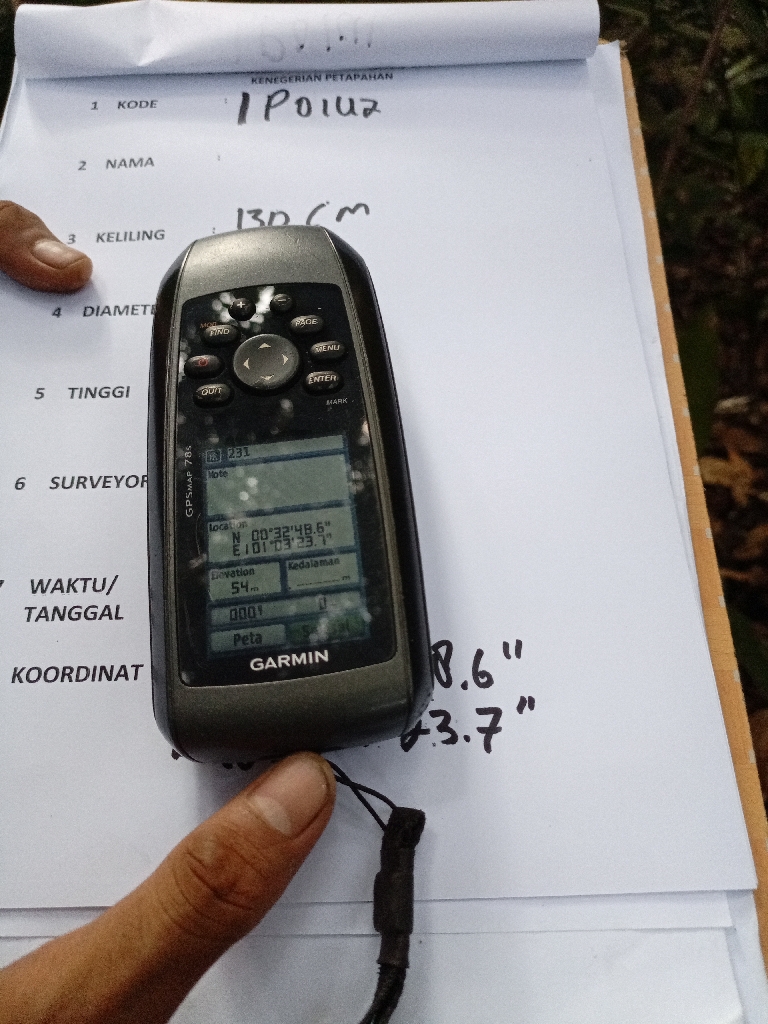 KENEGERIAN PETAPAHAN
1 KODE : 1P01U2
2 NAMA :
3 KELILING : 130 CM
4 DIAMETE
5 TINGGI
6 SURVEYOR
WAKTU/
TANGGAL
KOORDINAT
8.6"
23.7"
+ -
MOB
FIND
PAGE
MENU
QUIT
ENTER
MARK
GPSMAP 78s
231
Note
Location
N 00°32'48.6"
E101°03'23.7"
Elevation
54m
Kedalaman
Peta
GARMIN